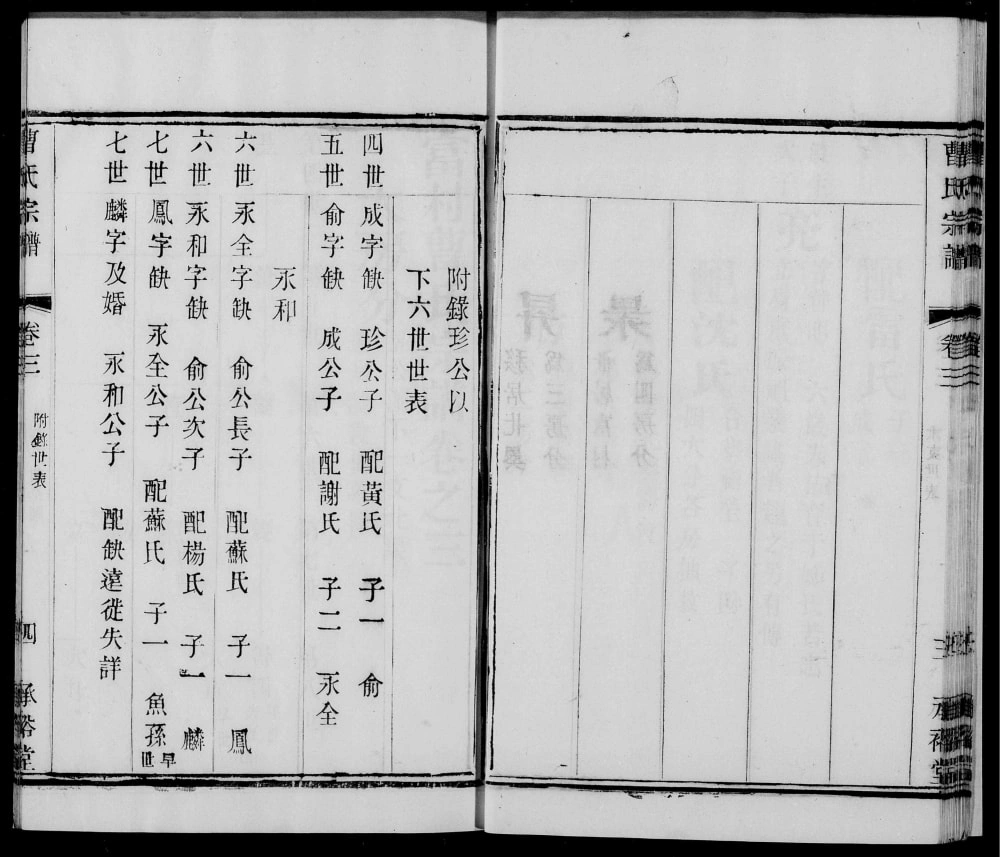 曹氏宗譜
卷三
三
承裕堂
附錄珍公以
下六世世表
四世 成字缺 珍公子 配黃氏 子一 俞
五世 俞字缺 成公子 配謝氏 子二 永全
永和
六世 永全字缺 俞公長子 配蘇氏 子一 鳳
六世 永和字缺 俞公次子 配楊氏 子一 麟
七世 鳳字缺 永全公子 配蘇氏 子一 魚孫早世
七世 麟字及婚 永和公子 配缺遠徙失詳
曹氏宗譜
卷三
附錄世表
四
承裕堂